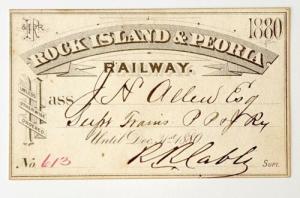 1880
ROCK ISLAND & PEORIA
RAILWAY.
Pass J H Allen Esq
UNLESS OTHERWISE ORDERED
Supt Trains P P & J Ry
Until Dec 31st 1880
No. 613
R R Cable
SUPT.